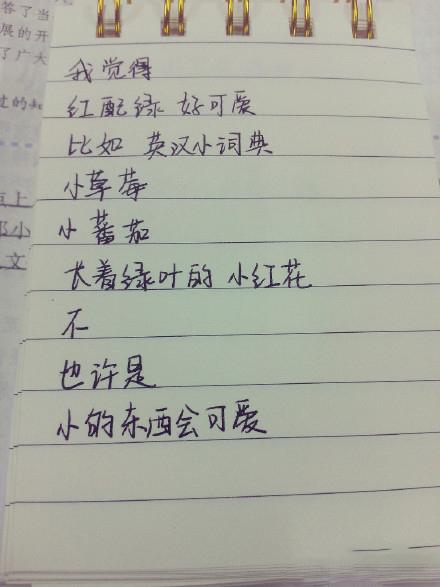 答了当
展的开
了广大
过的知
点上
邓小
文
我觉得
红配绿 好可爱
比如 英汉小词典
小草莓
小蕃茄
长着绿叶的 小红花
不
也许是
小的东西会可爱